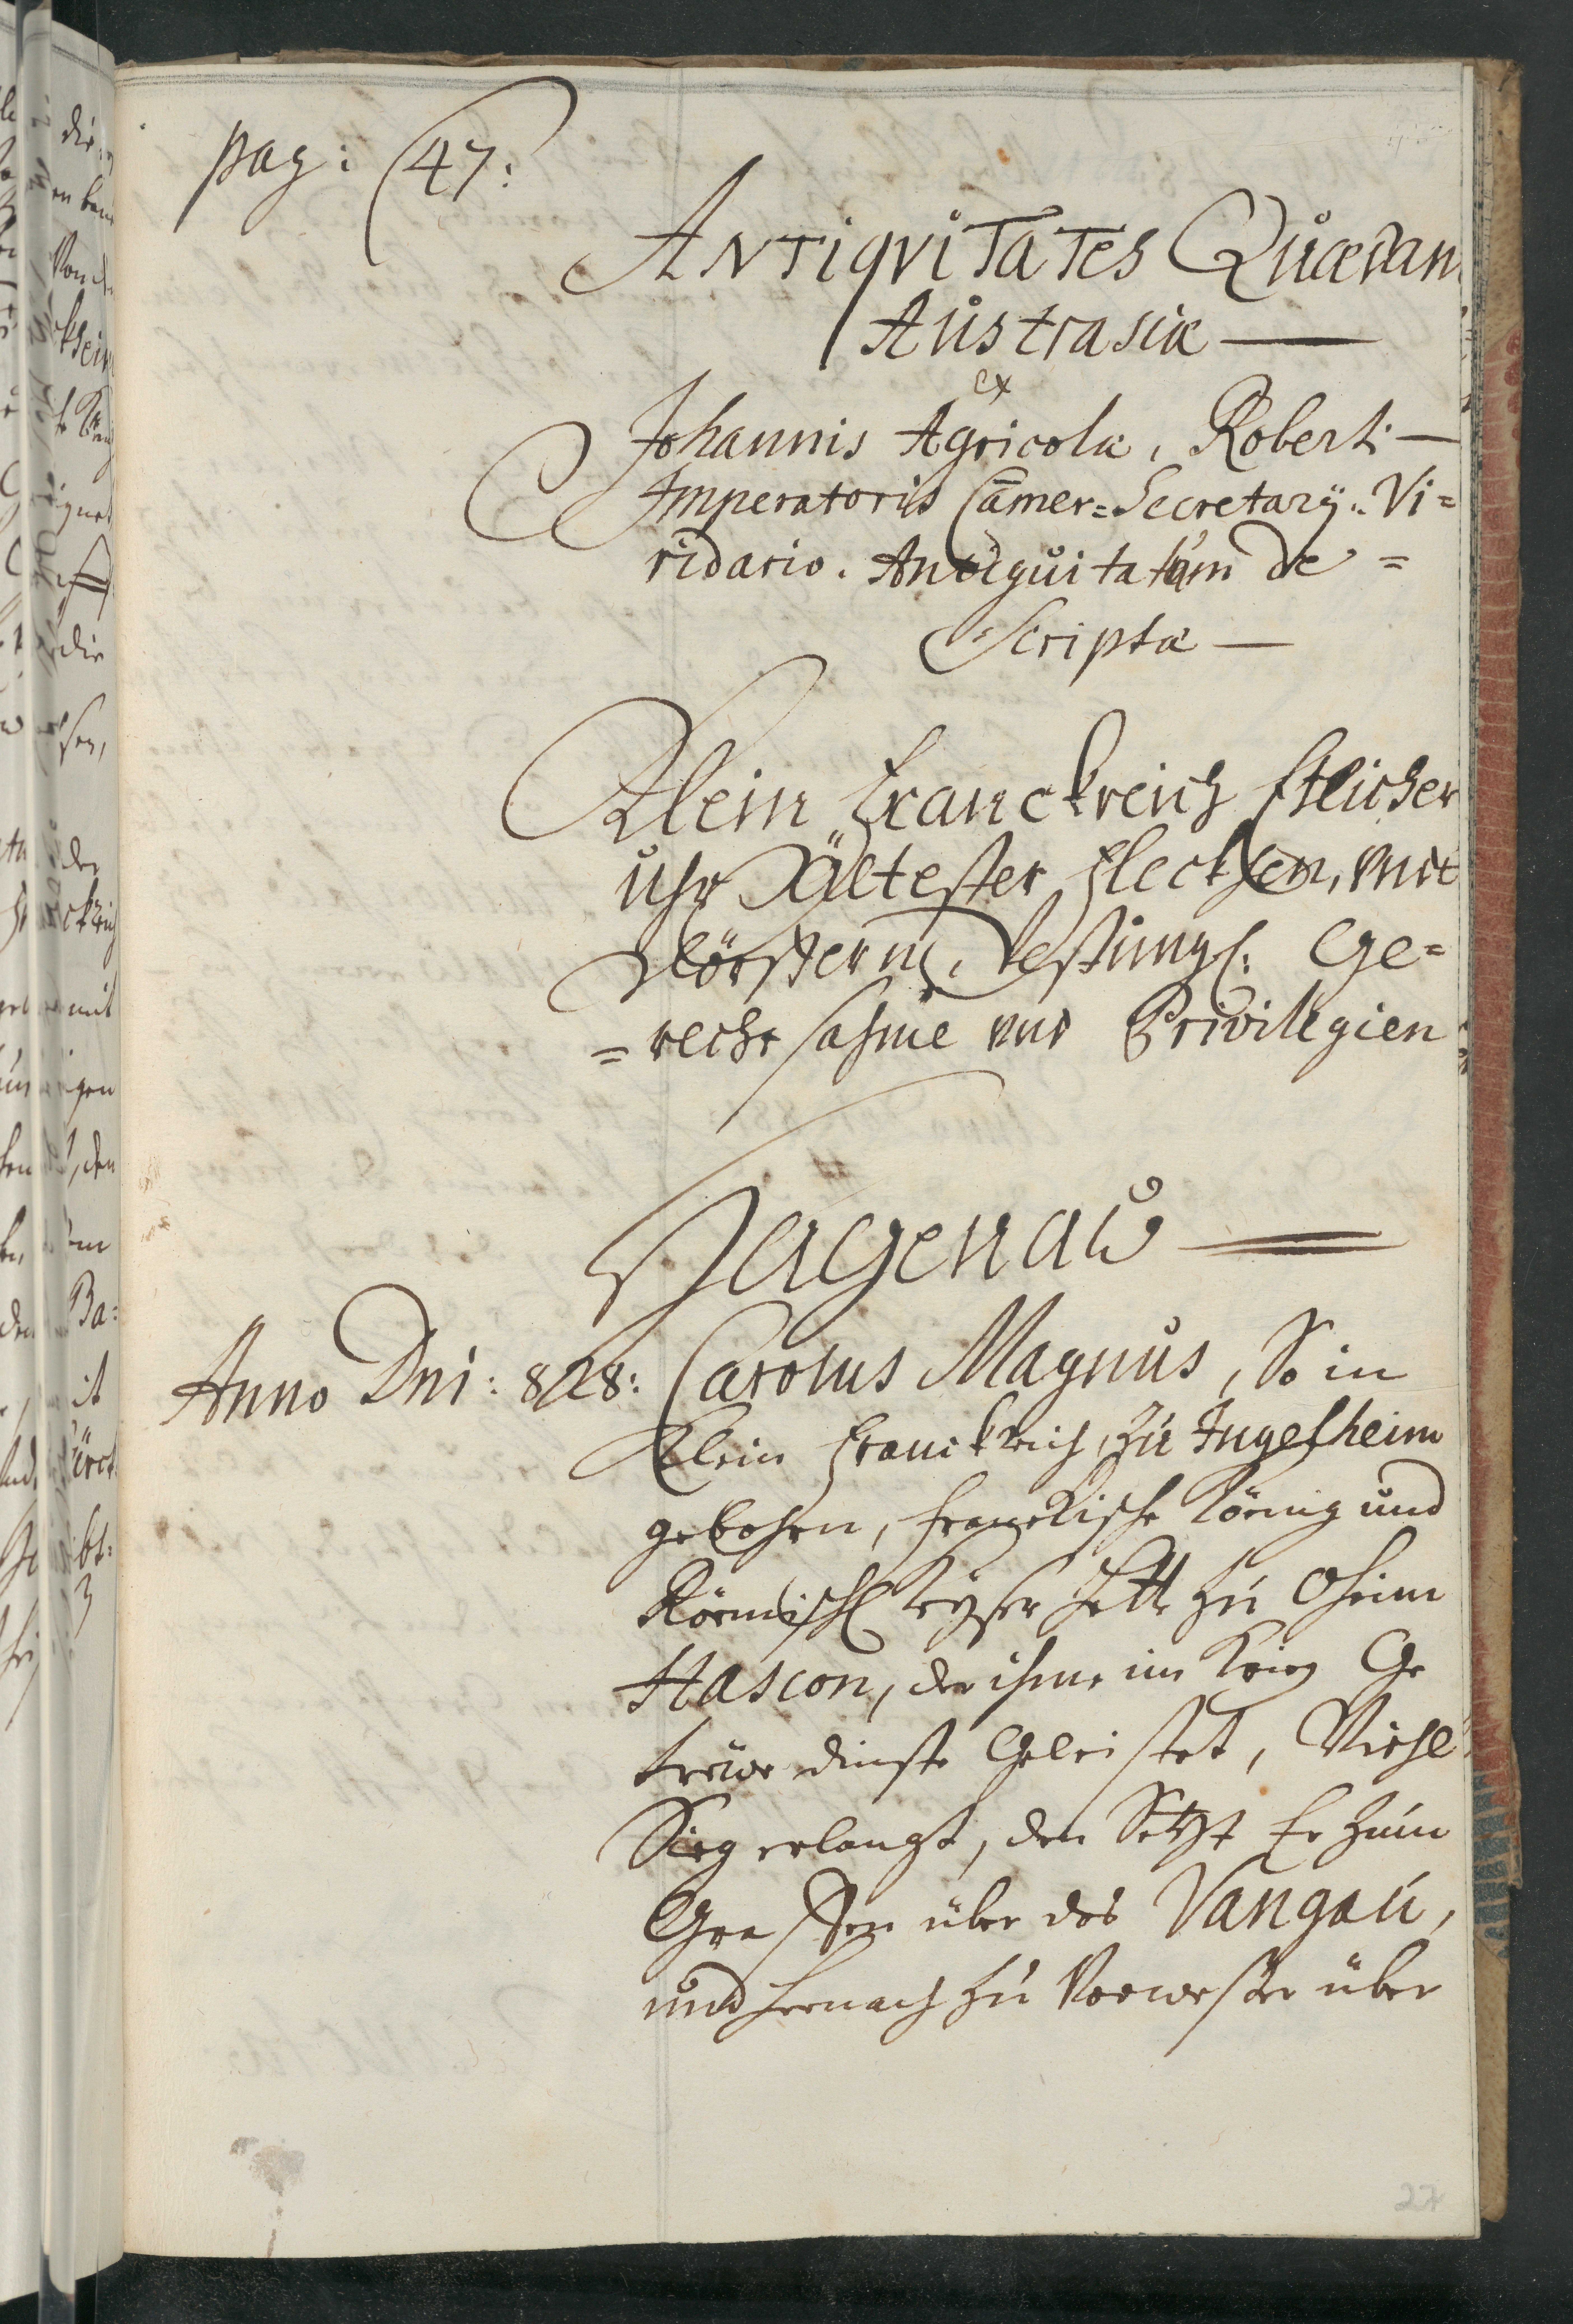 pag: 47:
Antiqvitates Quædam
Austrasiæ —
ex
Johannis Agricolæ, Roberti —
Imperatoris Camer=Secretarÿ.. Vi=
ridario. Antiquitatum de=
scriptæ —
Klein Franckreich Etlicher
uhr Ältester Fleckhen, vndt
Clöster in, Vestung: Ge=
=recht sahme vnd Privilegien
Hagenaw —
Anno Dni: 828: Carolus Magnus, So in
Klein Franckreich, zu Ingelheim
gebohrn, franckische König und
Römisch Keyser hatte zu Oheim
Hascon, der ihme im Krieg Ge
trewe dinste Geleistet, Viehl
Sieg erlangt, den Setzt Er zum
Graffen über das Vangau,
und hernach zu Vorweser über
22